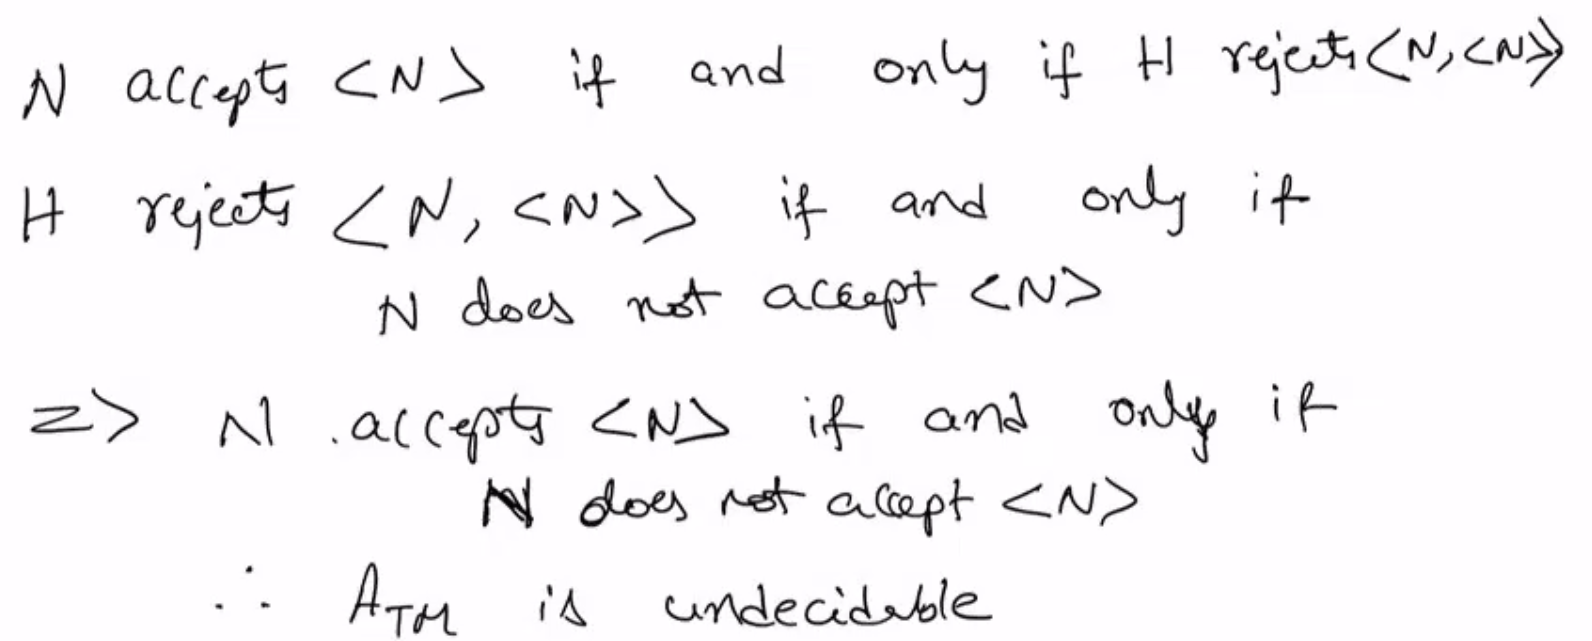 N accepts <N> if and only if H rejects <N, <N>>
H rejects <N, <N>> if and only if
N does not accept <N>
=> N accepts <N> if and only if
N does not accept <N>
∴ A_TM is undecidable